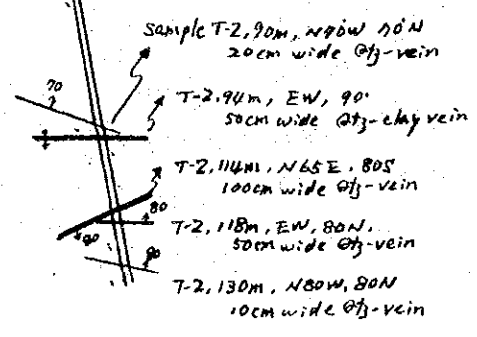 Sample T-2, 90m, N70W 70N
20cm wide Qtz-vein
70
T-2, 94m, EW, 90°
50cm wide Qtz-clay vein
T-2, 114m, N65E, 80S
100cm wide Qtz-vein
80
T-2, 118m, EW, 80N.
90
50cm wide Qtz-vein
80
T-2, 130m, N80W, 80N
10cm wide Qtz-vein